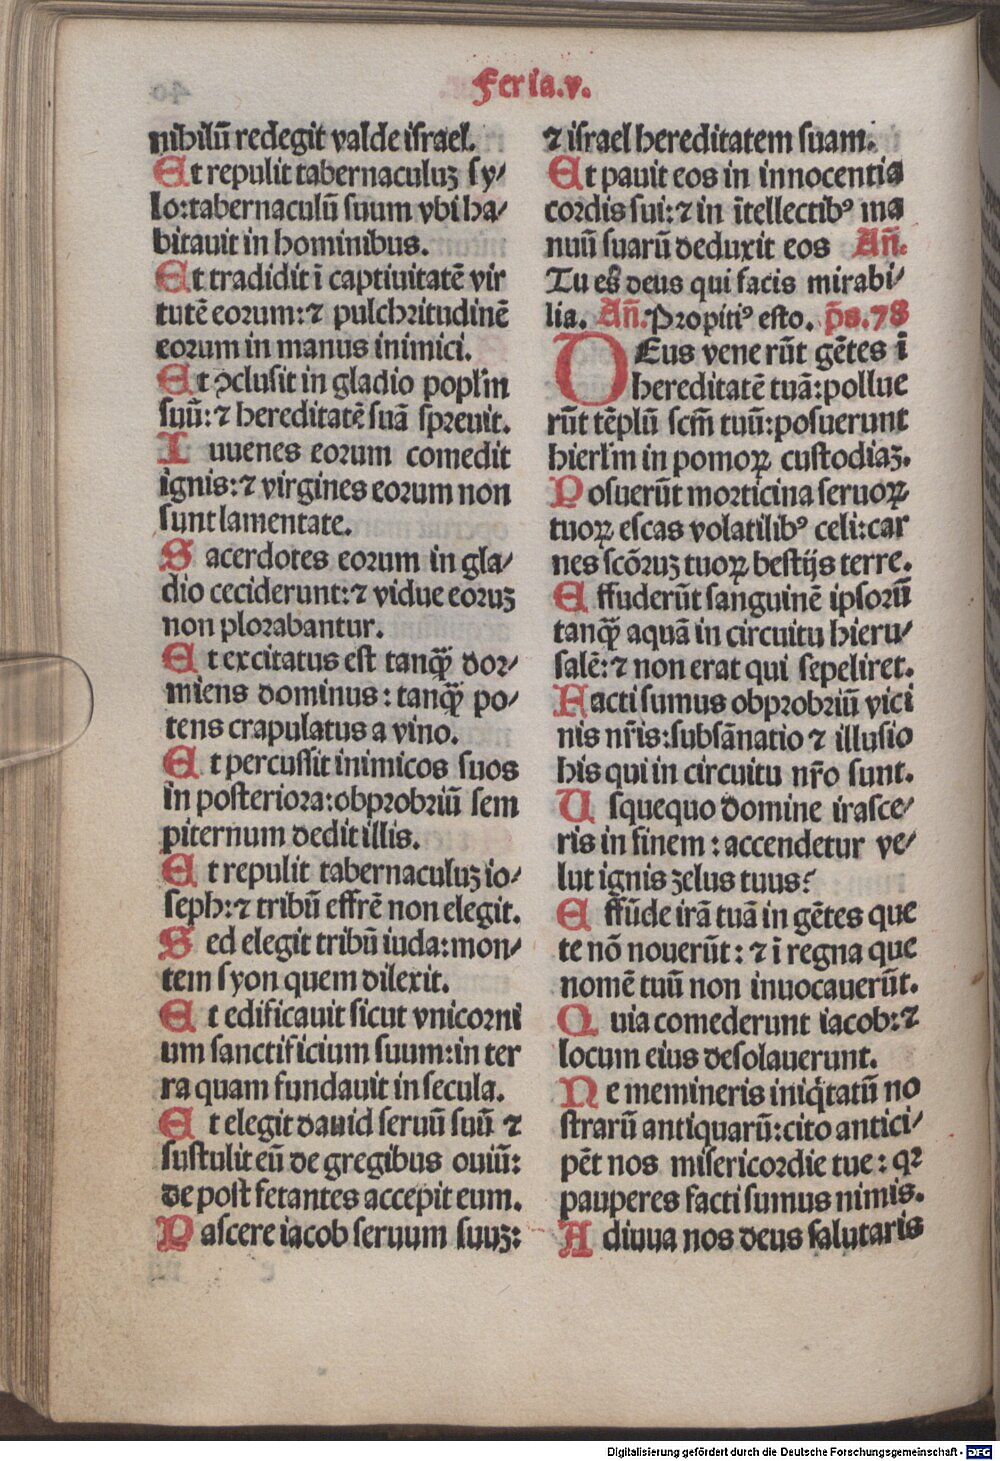 Feria.v.
nibilū redegit valde iſrael.
Et repulit tabernaculuꝫ ſy⸗
lo:tabernaculū ſuum vbi ha⸗
bitauit in hominibus.
Et tradidit ī captiuitatē vir
tutē eoꝛum:⁊ pulchꝛitudinē
eoꝛum in manus inimici.
Et ꝯcluſit in gladio popl'm
ſuū:⁊ hereditatē ſuā ſpꝛeuit.
Iuuenes eoꝛum comedit
ignis:⁊ virgines eoꝛum non
ſunt lamentate.
Sacerdotes eoꝛum in gla⸗
dio ceciderunt:⁊ vidue eoꝛuꝫ
non ploꝛabantur.
Et excitatus eſt tanꝙ̄ doꝛ⸗
miens dominus: tanꝙ̄ po⸗
tens crapulatus a vino.
Et percuſſit inimicos ſuos
in poſterioꝛa:obpꝛobꝛiū ſem
piternum dedit illis.
Et repulit tabernaculuꝫ io⸗
ſeph:⁊ tribū effrē non elegit.
Sed elegit tribū iuda:mon⸗
tem ſyon quem dilexit.
Et edificauit ſicut vnicoꝛni
um ſanctificium ſuum:in ter
ra quam fundauit in ſecula.
Et elegit dauid ſeruū ſuū ⁊
ſuſtulit eū de gregibus ouiū:
de poſt fetantes accepit eum.
Paſcere iacob ſeruum ſuuꝫ:
⁊ iſrael hereditatem ſuam.
Et pauit eos in innocentia
coꝛdis ſui:⁊ in ītellectibꝰ ma
nuū ſuarū deduxit eos Añ.
Tu es deus qui facis mirabi⸗
lia. Añ. Pꝛopitiꝰ eſto. p̄s.78
DEus venerūt gētes ī
hereditatē tuā:pollue
rūt tēplū ſcm̄ tuū:poſuerunt
hierl'm in pomoꝝ cuſtodiaꝫ.
Poſuerūt moꝛticina ſeruoꝝ
tuoꝝ eſcas volatilibꝰ celi:car
nes ſcōꝛuꝫ tuoꝝ beſtijs terre.
Effuderūt ſanguinē ipſoꝛū
tanꝙ̄ aquā in circuitu hieru⸗
ſalē:⁊ non erat qui ſepeliret.
Facti ſumus obpꝛobꝛiū vici
nis nr̄is:ſubſānatio ⁊ illuſio
his qui in circuitu nr̄o ſunt.
Uſquequo domine iraſce⸗
ris in finem: accendetur ve⸗
lut ignis zelus tuus?
Effūde irā tuā in gētes que
te nō nouerūt: ⁊ ī regna que
nomē tuū non inuocauerūt.
Quia comederunt iacob:⁊
locum eius deſolauerunt.
Ne memineris iniq̇tatū no
ſtrarū antiquarū:cito antici⸗
pēt nos miſericoꝛdie tue: qꝛ
pauperes facti ſumus nimis.
Adiuua nos deus ſalutaris
Digitalisierung gefördert durch die Deutsche Forschungsgemeinschaft - DFG